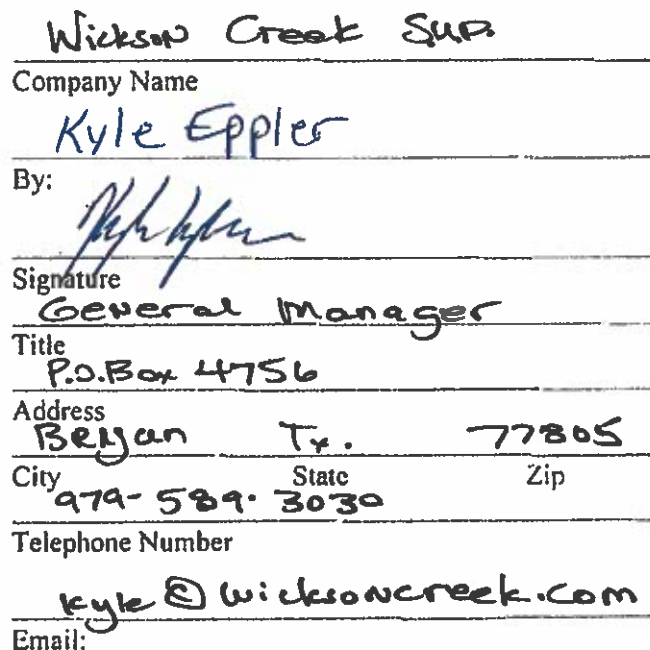 Wickson Creek SUD.
Company Name
Kyle Eppler
By:
Signature
General Manager
Title
P.O.Box 4756
Address
Bryan Tx. 77805
City State Zip
979-589-3030
Telephone Number
kyle@wicksoncreek.com
Email: